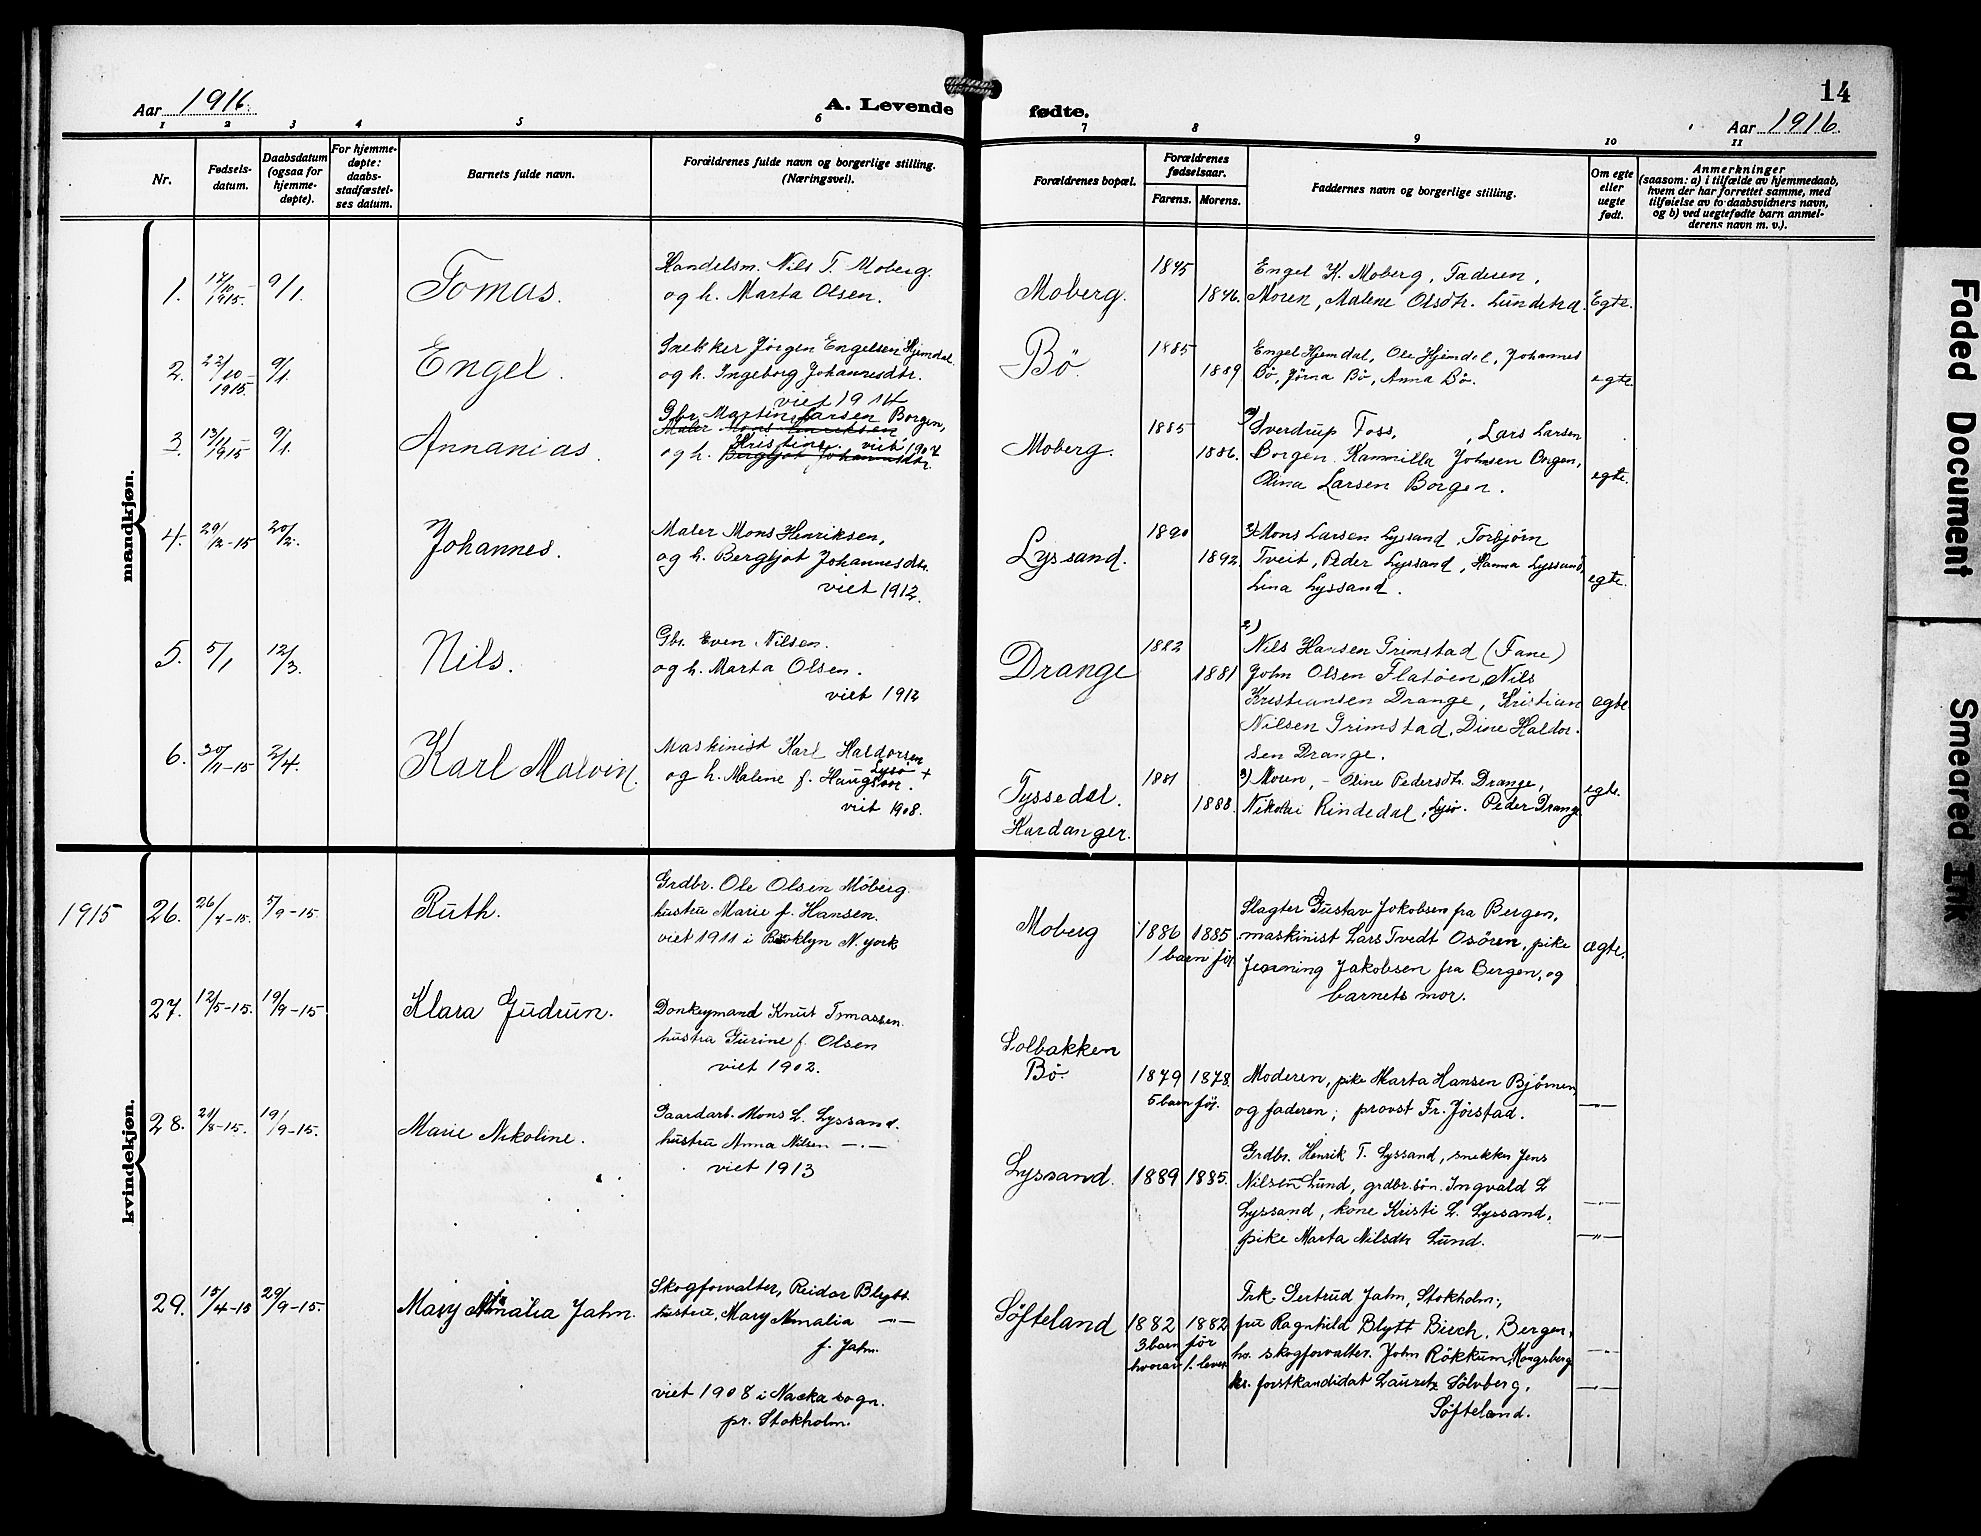 Aar 1916.
A. Levende
fødte.
14
Aar 1916.
1 2 3 4 5 6 7 8 9 10 11
Nr.
Fødsels-
datum.
Daabsdatum
(ogsaa for
hjemme-
døpte).
For hjemme-
døpte:
daabs-
stadfæstel-
ses datum.
Barnets fulde navn.
Forældrenes fulde navn og borgerlige stilling.
(Næringsvei).
Forældrenes bopæl.
Forældrenes
fødselsaar.
Farens. Morens.
Faddernes navn og borgerlige stilling.
Om egte
eller
uegte
født.
Anmerkninger
(saasom: a) i tilfælde av hjemmedaab,
hvem der har forrettet samme, med
tilføielse av to daabsvidners navn,
og b) ved uegtefødte barn anmel-
derens navn m. v.).
mandkjøn.
1. 17/10 - 1915. 9/1. Tomas.
Handelsm. Nils T. Moberg.
og h. Marta Olsen.
Moberg. 1845 1846.
Engel K. Moberg, Faderen,
Moren, Malene Olsdtr. Lundetræ. Egte.
2. 22/10 - 1915. 9/1. Engel.
Snekker Jørgen Engelsen Hjemdal.
og h. Ingeborg Johannesdtr.
viet 1914
Bø. 1885 1889
Engel Hjemdal, Ole Hjemdal, Johannes
Bø, Jørna Bø, Anna Bø. egte.
3. 13/11 - 1915 9/1. Annanias.
Gbr. Martin Larsen Borgen,
Maler Mons Henriksen
Kristine. viet 1907
og h. Bergljot Johannesdtr.
Moberg. 1885 1886.
Sverdrup Foss, , Lars Larsen
Borgen. Kammilla Johnsen Borgen,
Olina Larsen Borgen. egte.
4. 29/12-15 20/2. Johannes.
Maler Mons Henriksen,
og h. Bergljot Johannesdtr.
viet 1912.
Lyssand. 1890 1892.
Mons Larsen Lyssand, Torbjørn
Tveit, Peder Lyssand, Hanna Lyssand,
Lina Lyssand. egte.
5. 5/1 12/3. Nils.
Gbr. Even Nilsen.
og h. Marta Olsen.
viet 1912
Drange 1882 1881
Nils Hansen Grimstad (Fane)
John Olsen Flatøen, Nils
Kristiansen Drange, Kristian
Nilsen Grimstad, Dine Haldor-
sen Drange. egte
6. 30/11-15 2/4. Karl Malvin.
Maskinist Karl Haldorsen
Lysø +
og h. Malene f. Haugsøen.
viet 1908.
Tyssedal.
Hardanger. 1881 1888.
Moren, - Oline Pedersdtr. Drange,
Nikolai Rindedal, Lysø. Peder Drange egte.
kvindekjøn.
1915 26. 26/7-15. 5/9-15. Ruth.
Grdbr. Ole Olsen Moberg.
hustru Marie f. Hansen.
viet 1911 i Brooklyn N. york
Moberg 1886 1885
1 barn før.
Slagter Gustav Jakobsen fra Bergen,
maskinist Lars Tvedt Osøren, pike
Jenning Jakobsen fra Bergen, og
barnets mor. ægte.
27. 12/5-15. 19/9-15 Klara Gudrun.
Donkeymand Knut Tomassen.
hustru Gurine f. Olsen
viet 1902.
Solbakken
Bø. 1879 1878.
5 barn før.
Moderen, pike Marta Hansen Bjørnen,
og faderen; provst Fr. Jørstad. —"—
28. 21/8-15. 19/9-15. Marie Nikoline.
Gaardarb. Mons L. Lyssand.
hustru Anna Nilsen —"—
viet 1913
Lyssand. 1889 1885.
Grdbr. Henrik T. Lyssand, snekker Jens
Nilsen Lund, grdbr.søn. Ingvald L
Lyssand, kone Kristi L. Lyssand,
pike Marta Nilsdtr Lund. —"—
29. 15/4-15 29/9-15. Mary Amalia Jahn.
Skogforvalter, Reidar Blytt.
hustru, Mary Amalia —"—
f. Jahn.
viet 1908 i Nacka sogn.
pr. Stokholm.
Søfteland 1882 1882
3 barn før
hvorav 1. lever.
Frk. Gertrud Jahn, Stokholm,
fru Ragnhild Blytt Birch, Bergen,
hr. skogforvalter. John Røkkum, Kongsberg
hr. forstkandidat Lauritz Sølvberg,
Søfteland. —"—
Faded Document
Smeared Ink